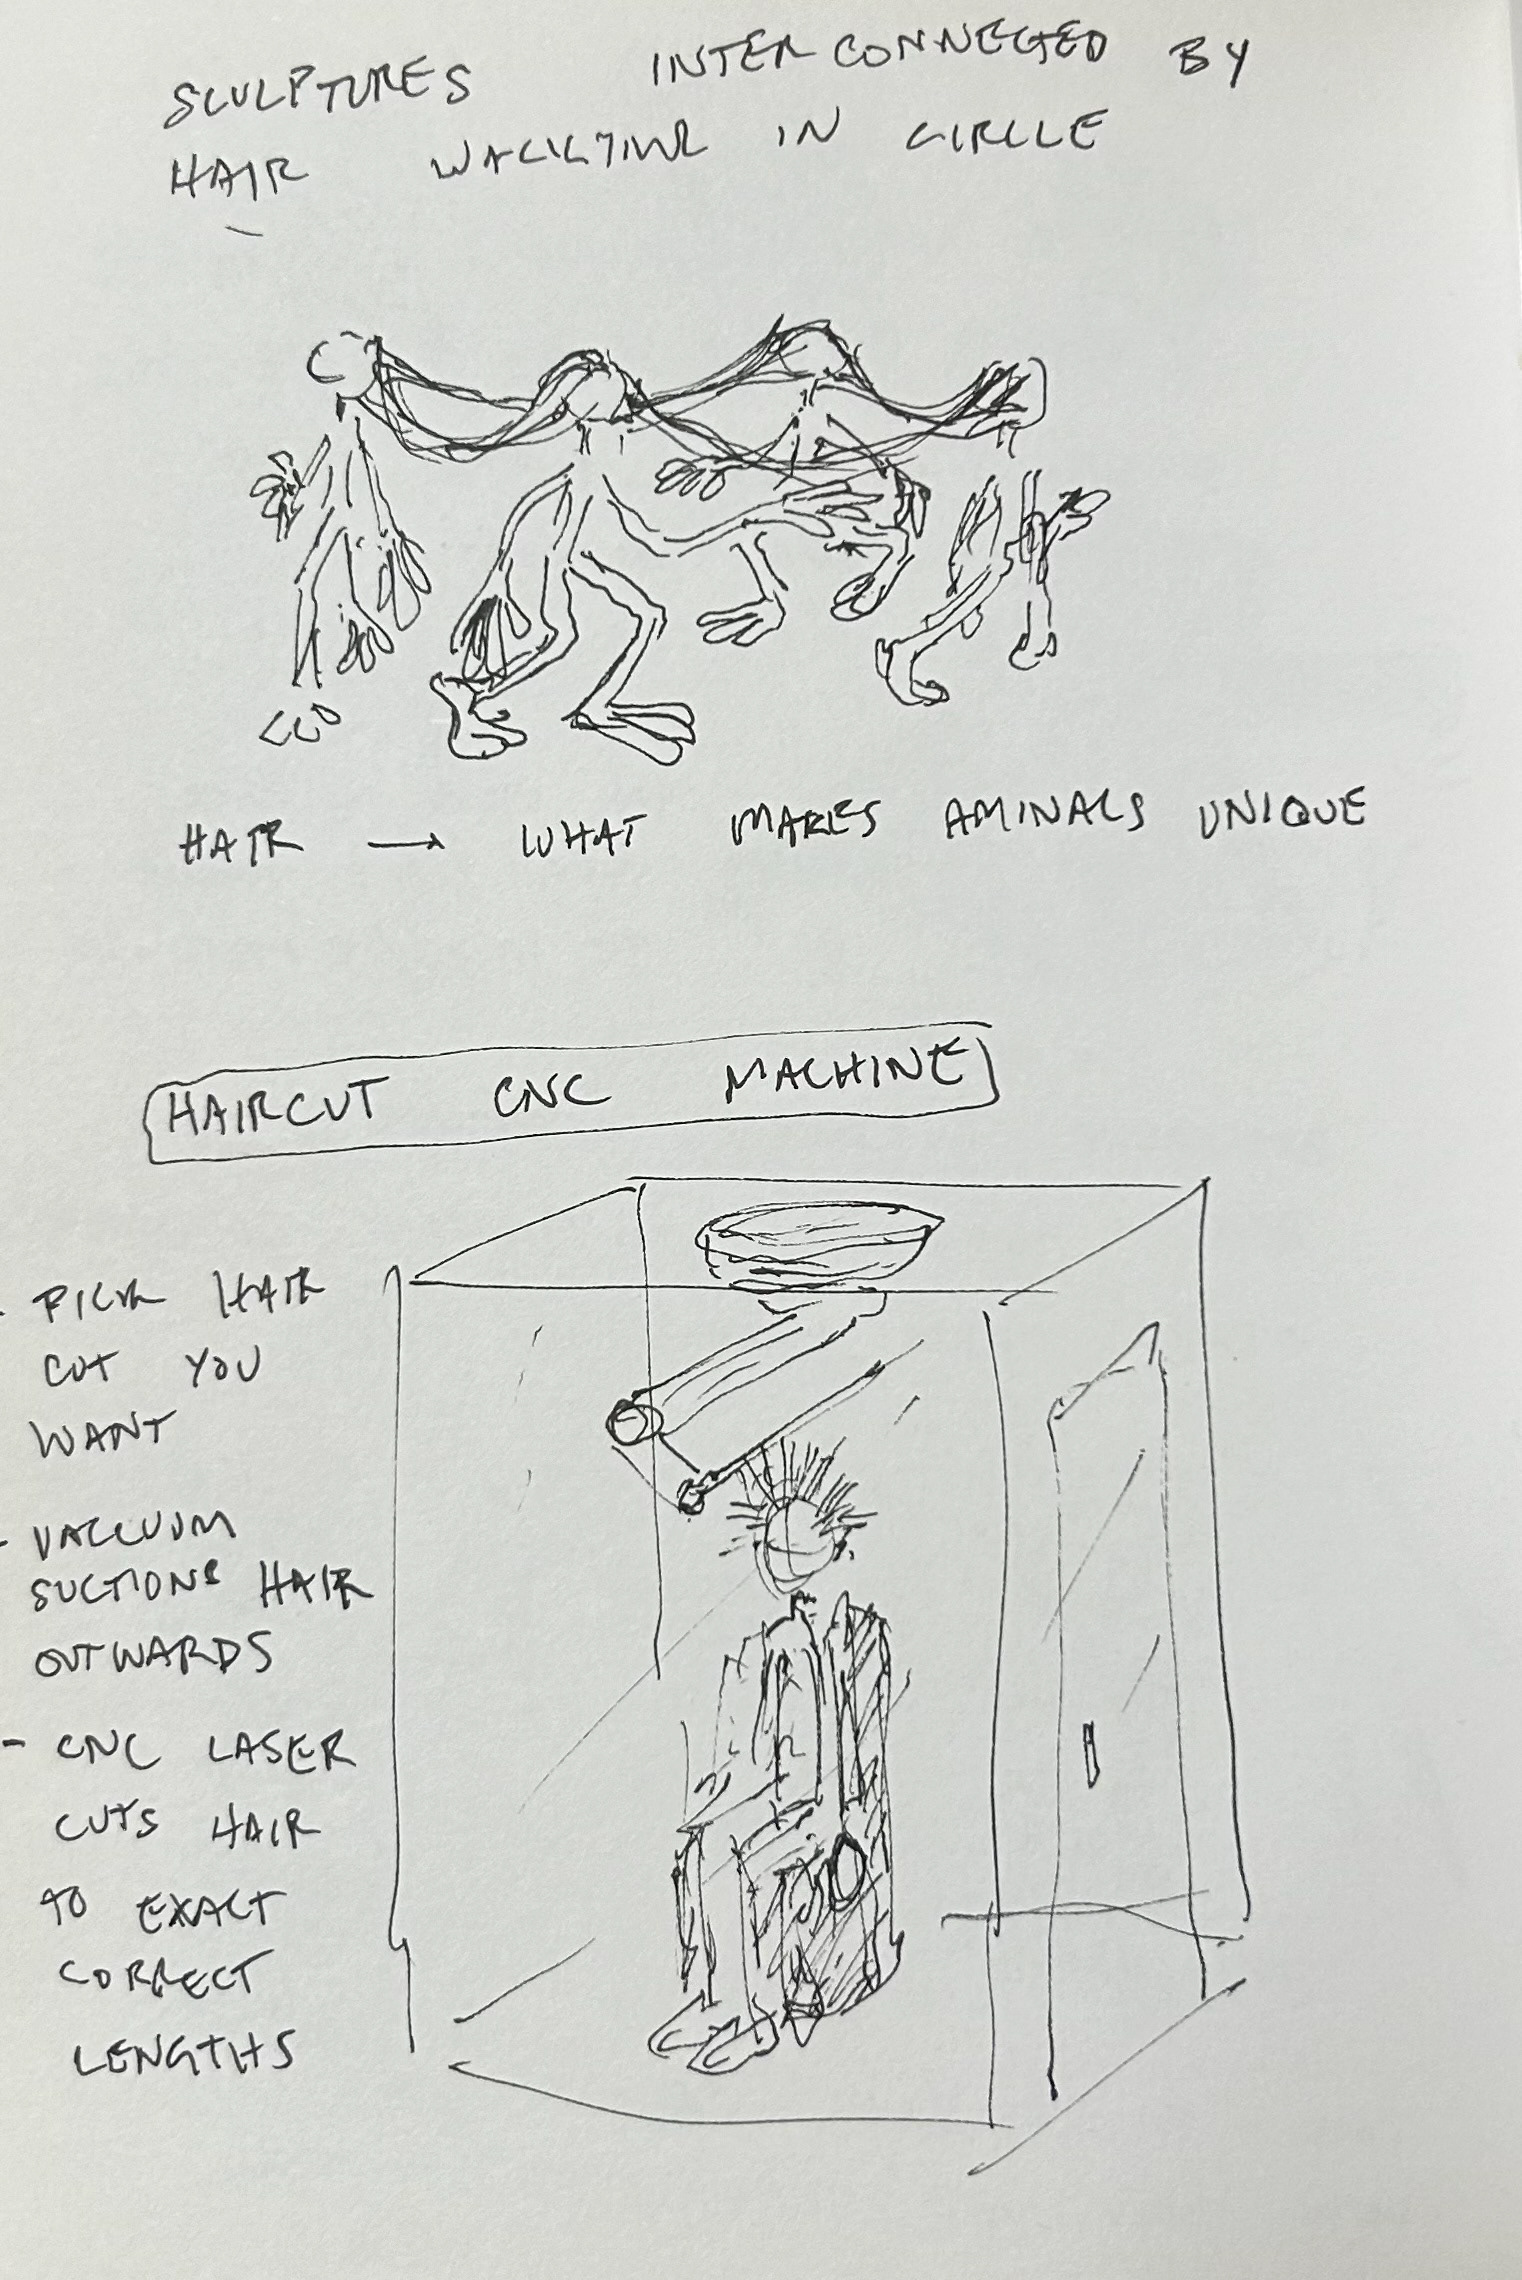 SCULPTURES INTERCONNECTED BY
HAIR WALKING IN CIRCLE
HAIR → WHAT MAKES AMINALS UNIQUE
HAIRCUT CNC MACHINE
- PICK HAIR
CUT YOU
WANT
- VACCUUM
SUCTIONS HAIR
OUTWARDS
- CNC LASER
CUTS HAIR
TO EXACT
CORRECT
LENGTHS